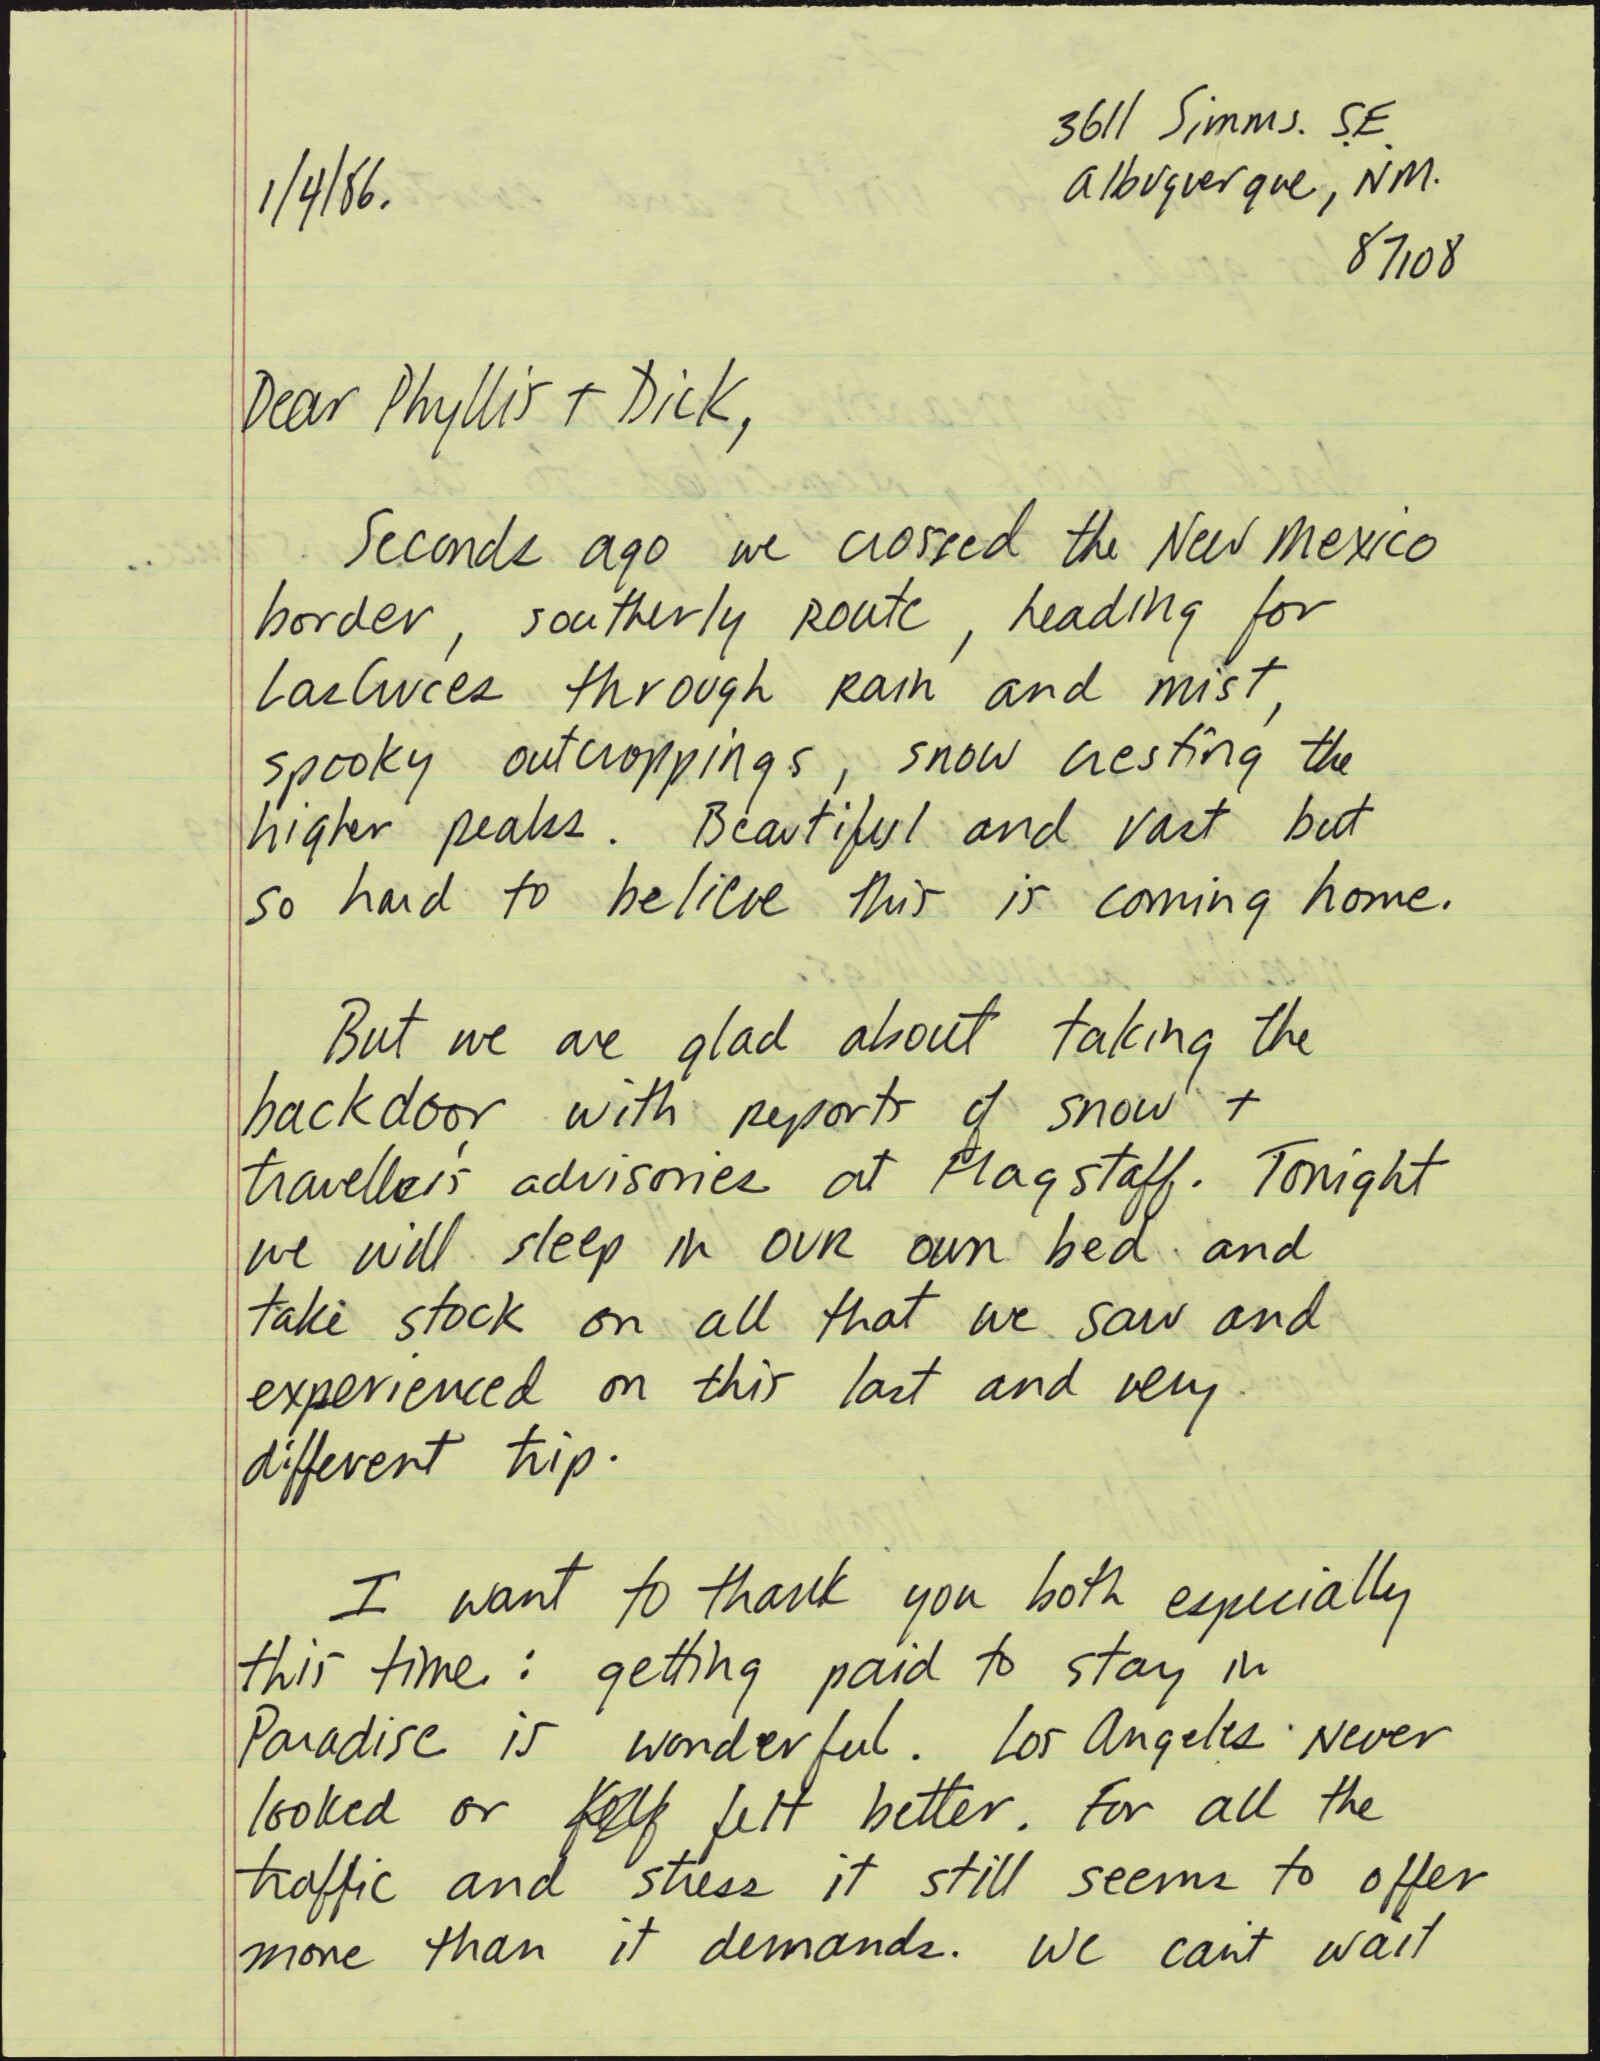 3611 Simms. S.E.
1/4/86.
Albuquerque, N.M.
87108
Dear Phyllis + Dick,
Seconds ago we crossed the New Mexico
border, southerly Route, heading for
Las Cruces through Rain and mist,
spooky outcroppings, snow cresting the
higher peaks. Beautiful and vast but
so hard to believe this is coming home.
But we are glad about taking the
backdoor with reports of snow +
traveller's advisories at Flagstaff. Tonight
we will sleep in OUR own bed and
take stock on all that we saw and
experienced on this last and very
different trip.
I want to thank you both especially
this time: getting paid to stay in
Paradise is wonderful. Los Angeles Never
looked or felt better. For all the
traffic and stress it still seems to offer
more than it demands. We can't wait